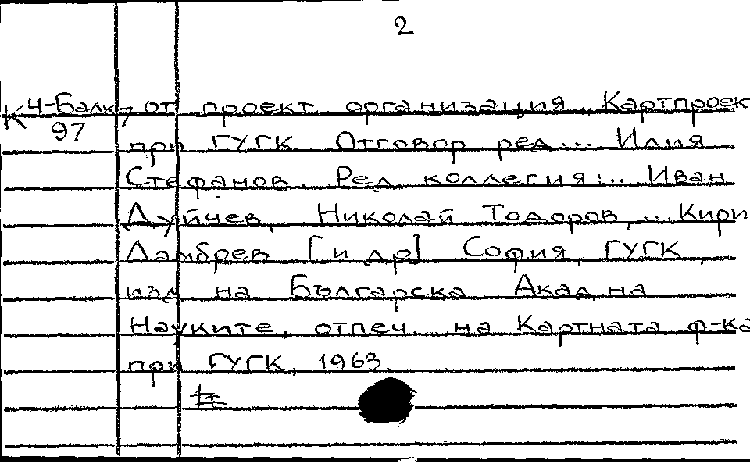 2
К Ч-Балк, от проект организация Картпроек
97
при ГУГК Отговор ред... Илия
Стефанов. Ред коллегия:.. Иван
Дуйчев, Николай Тодоров,... Кири
Ламбрев [и др] София, ГУГК,
изд на Българска Акад. на
Науките, отпеч. на Картната ф-ка
при ГУГК, 1963